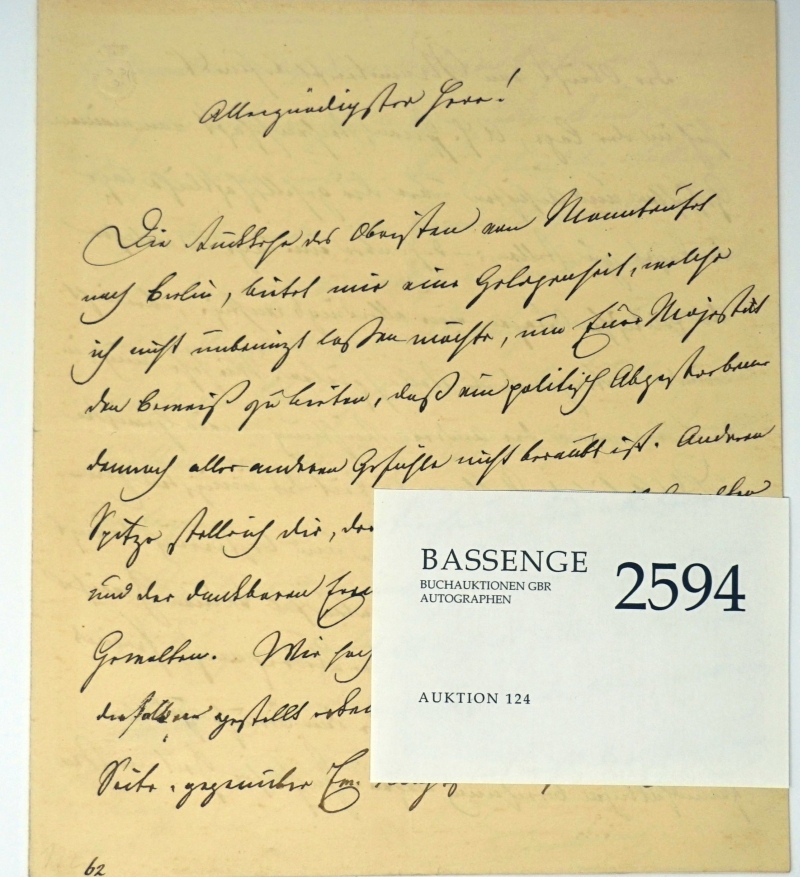 Allergnädigster Herr!
Die Rückkehr des Obristen von Manteuffel
nach Berlin, bietet mir eine Gelegenheit, welche
ich nicht unbenuzt lassen möchte, um Eurer Majestät
den Beweiß zu bieten, daß ein politisch Abgestorbener
dennoch aller anderen Gefühle nicht beraubt ist. An deren
Spitze stelle ich die, der
und der dankbaren
Gewalten. Wir
gestellt
Seite, gegenüber Ew.
62
BASSENGE
BUCHAUKTIONEN GBR
AUTOGRAPHEN
2594
AUKTION 124